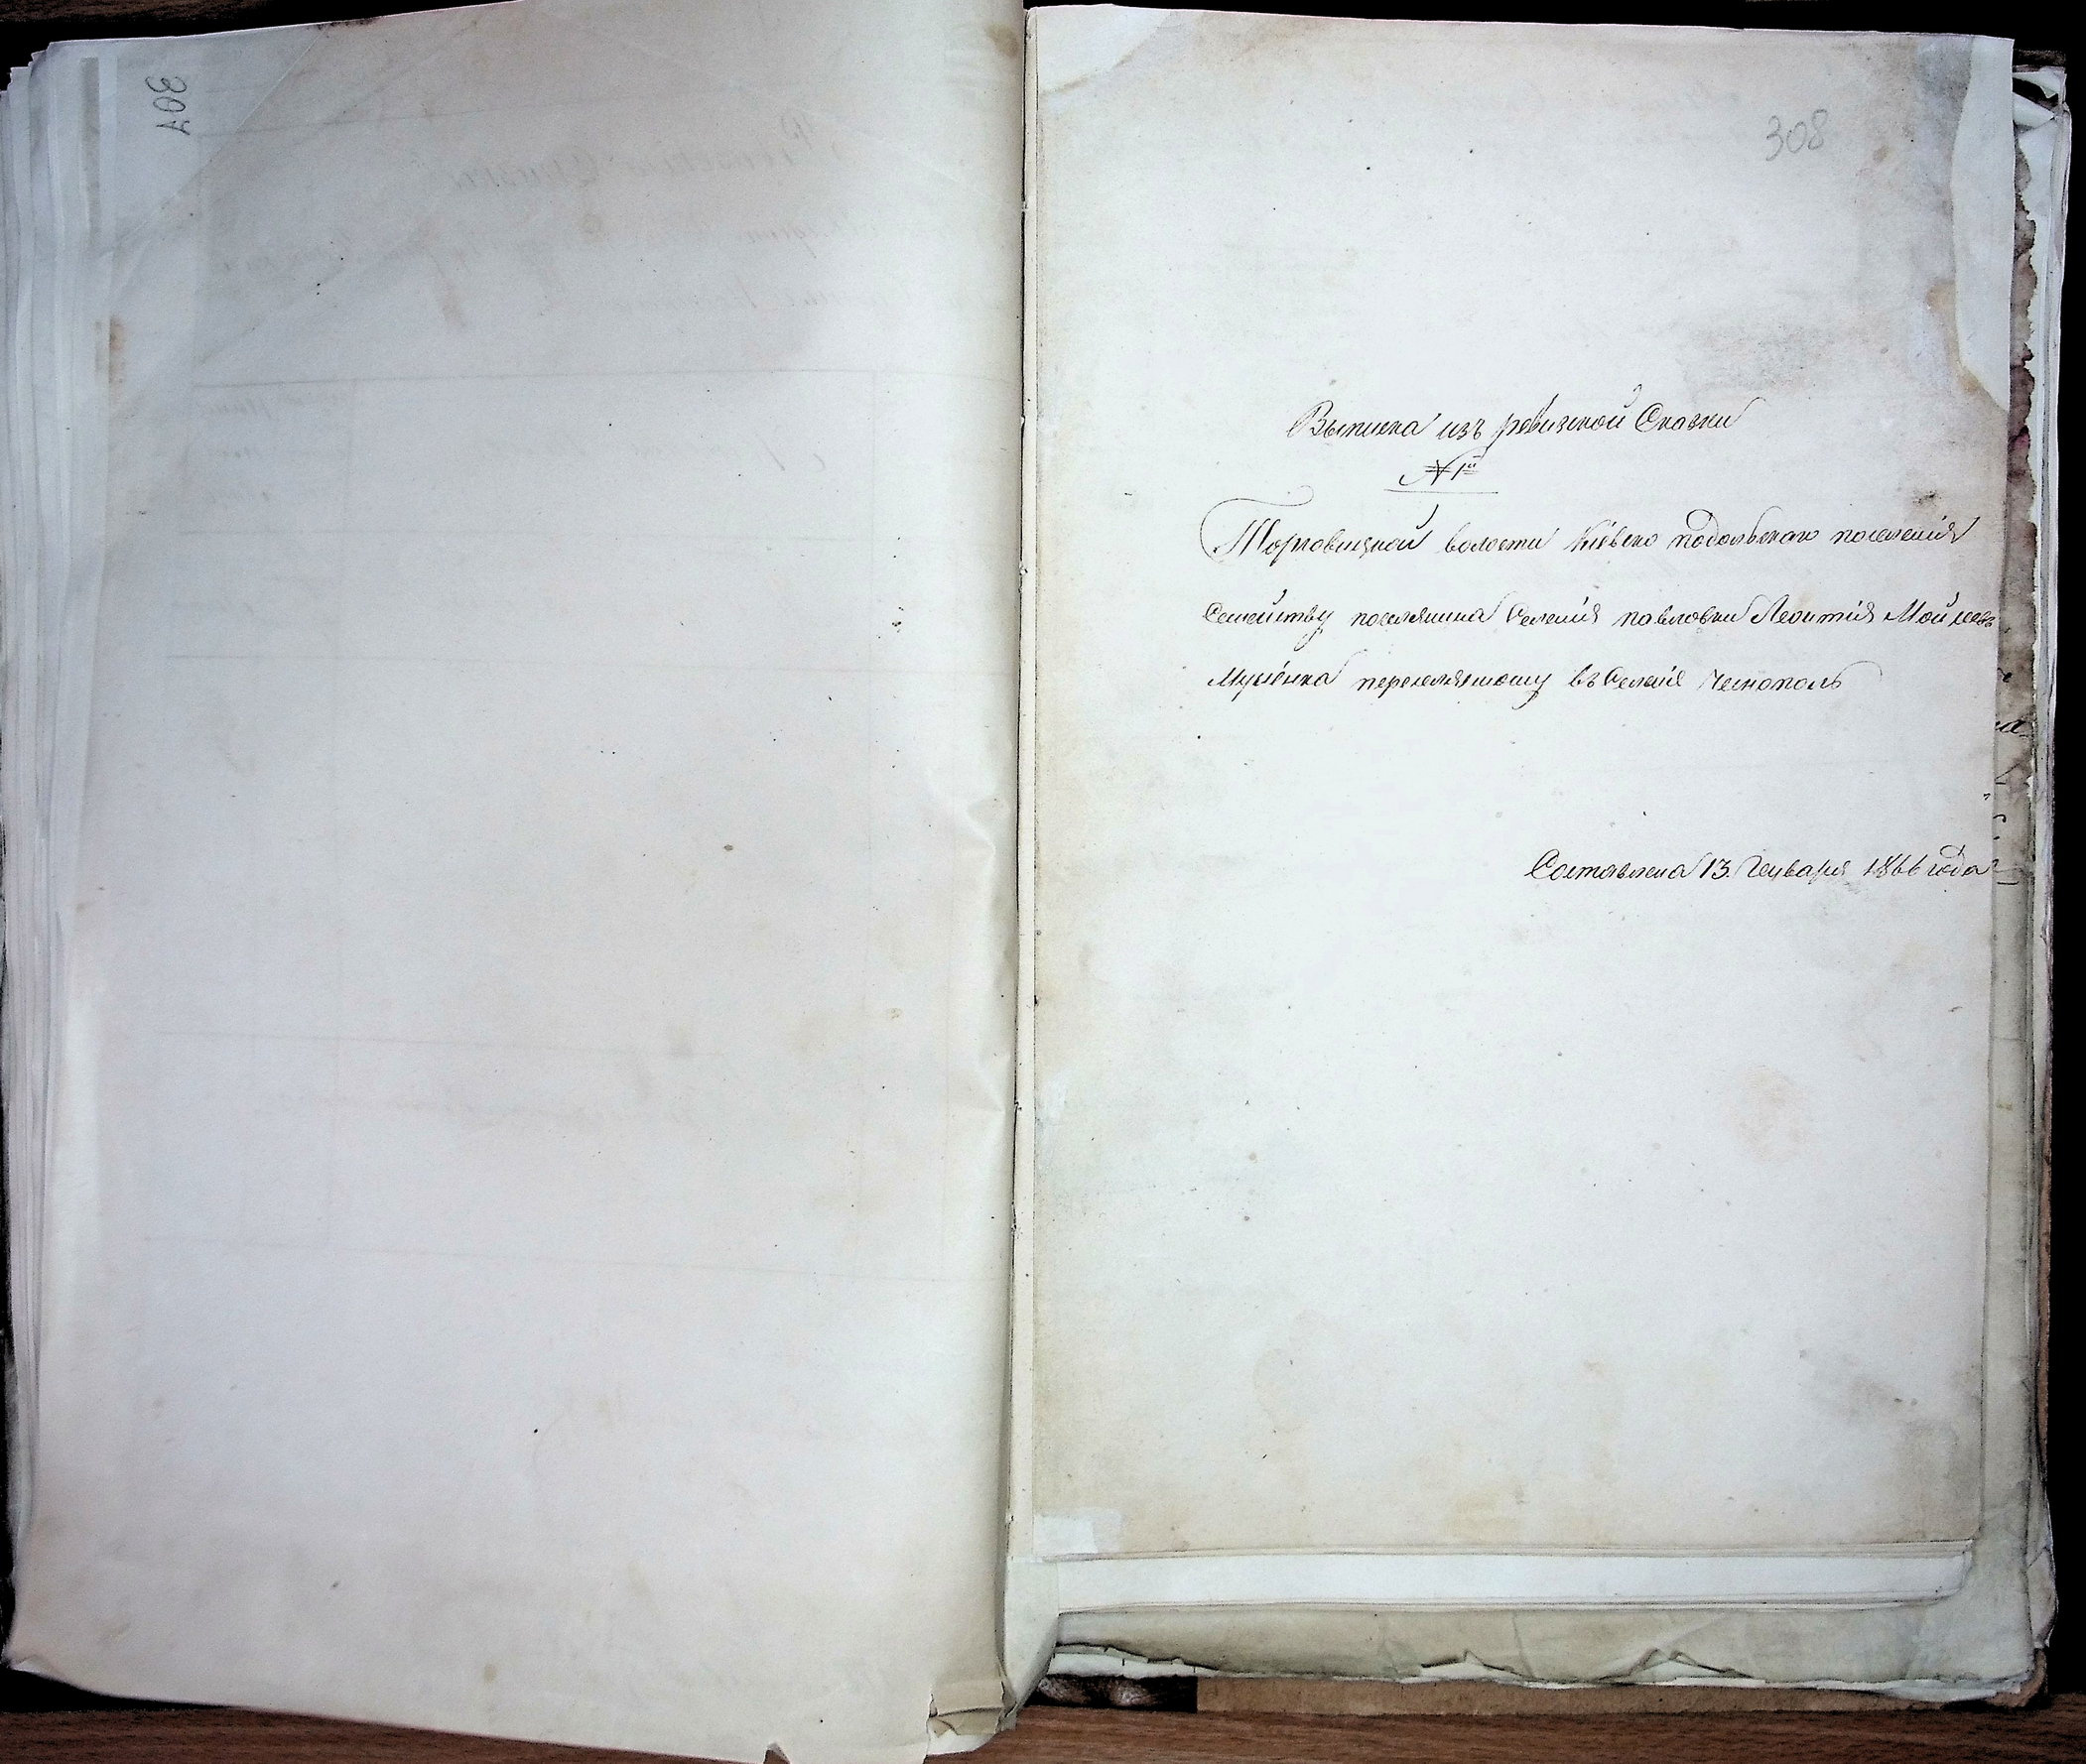 308
Выписка изъ ревизкой Сказки
№ 1й
Торговицкой волости Кіевско подольскаго поселенія
Семейству поселянина Селенія павловки Леонтія Мойсеева
переселяемому въ Селеніе
Составлена 13. Генваря 1866 года